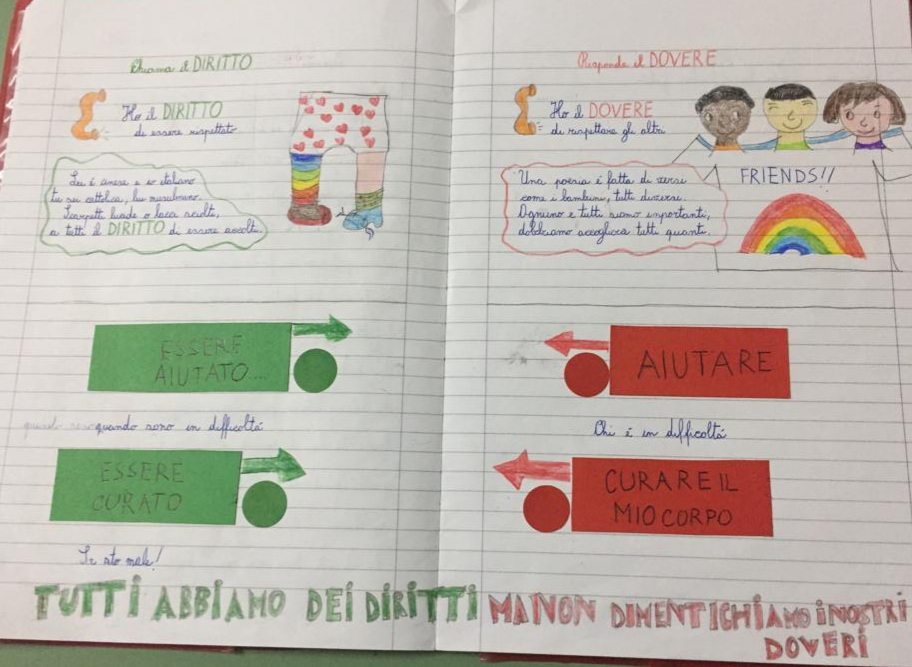 Chiama il DIRITTO
Ho il DIRITTO
di essere rispettato
Lei è cinese e io italiano
tu sei cattolica, lui musulmano.
scalzi,
a tutti il DIRITTO di essere accolti.
ESSERE
AIUTATO...
quando sono in difficoltà
ESSERE
CURATO
Se sto male!
TUTTI ABBIAMO DEI DIRITTI
Risponde il DOVERE
Ho il DOVERE
di rispettare gli altri
FRIENDS!!
Una poesia è fatta di versi
come i bambini, tutti diversi.
Ognuno e tutti siamo importanti,
dobbiamo accogliere tutti quanti.
AIUTARE
Chi è in difficoltà
CURARE IL
MIO CORPO
MA NON DIMENTICHIAMO I NOSTRI
DOVERI